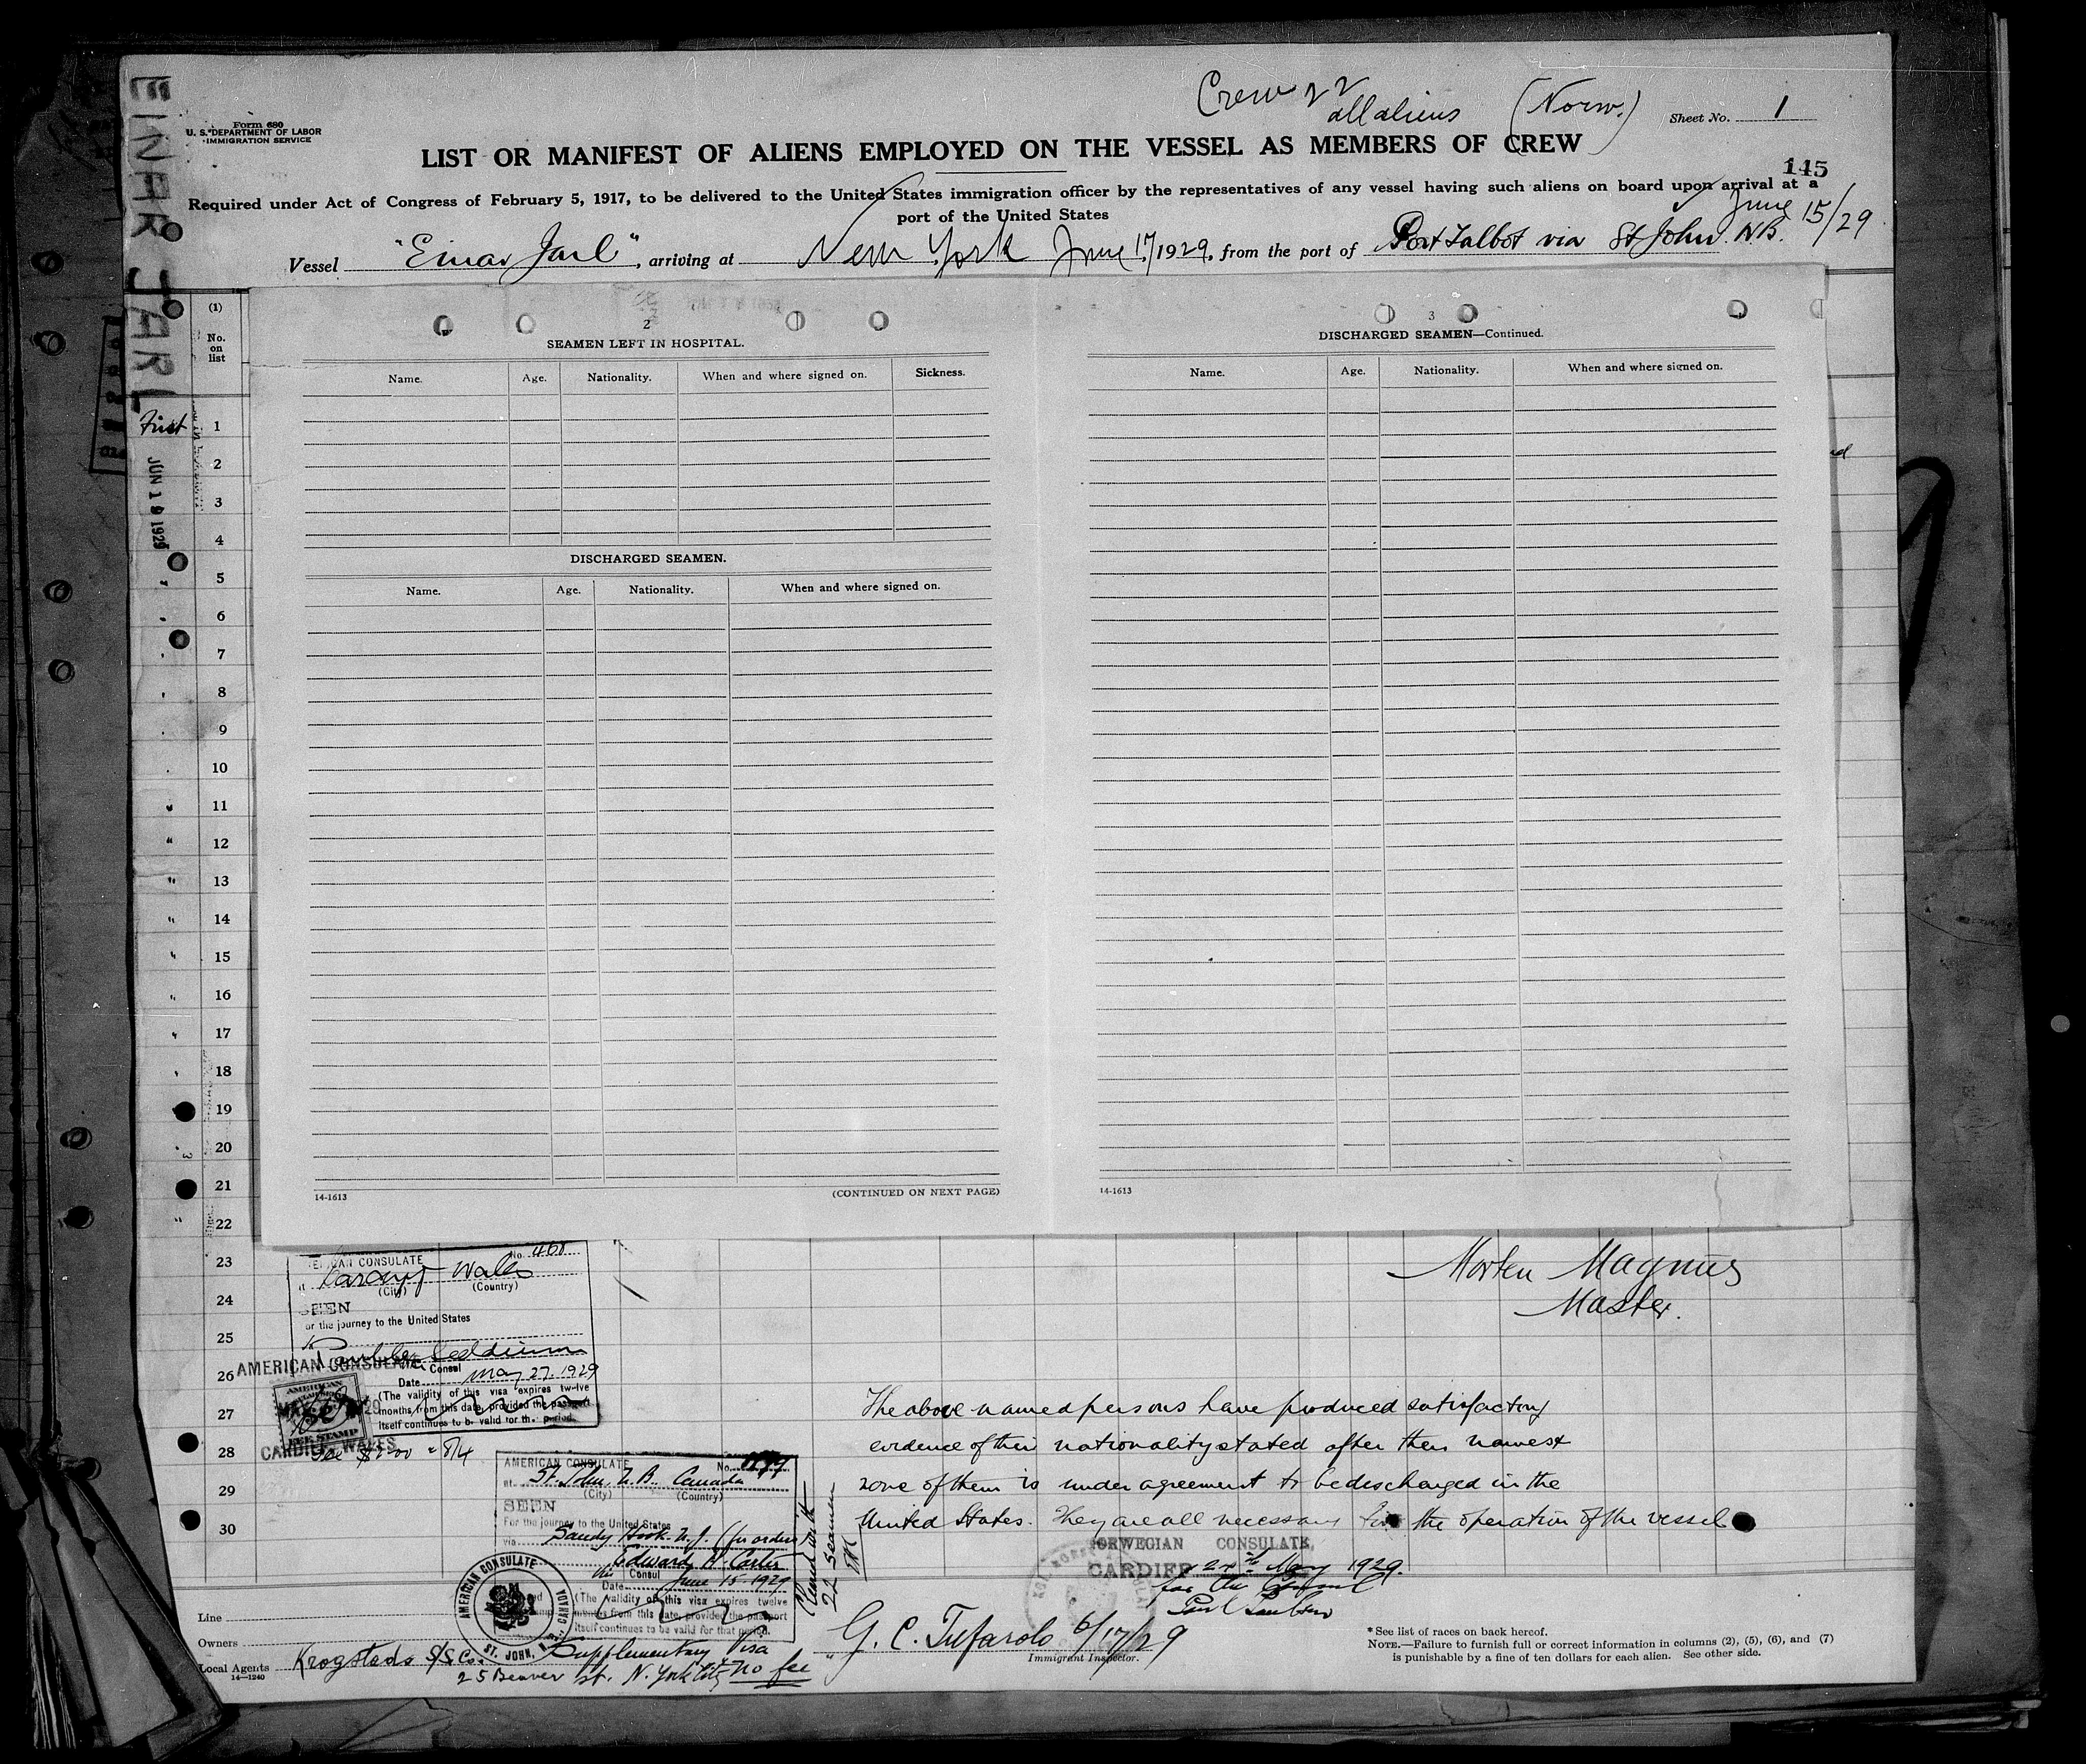 EINAR JARL
Crew 22
all aliens
(Norw.)
Sheet No. 1
Form 680
U. S. DEPARTMENT OF LABOR
IMMIGRATION SERVICE
LIST OR MANIFEST OF ALIENS EMPLOYED ON THE VESSEL AS MEMBERS OF CREW
145
Required under Act of Congress of February 5, 1917, to be delivered to the United States immigration officer by the representatives of any vessel having such aliens on board upon arrival at a
port of the United States
June 15/29
Vessel "Einar Jarl", arriving at New York June 17/1929, from the port of Port Talbot via St John. N.B.
(1)
No.
on
list
2
SEAMEN LEFT IN HOSPITAL.
Name. Age. Nationality. When and where signed on. Sickness.
DISCHARGED SEAMEN.
Name. Age. Nationality. When and where signed on.
14-1613 (CONTINUED ON NEXT PAGE)
3
DISCHARGED SEAMEN—Continued.
Name. Age. Nationality. When and where signed on.
14-1613
First
JUN 19 1929
1
2
3
4
5
6
7
8
9
10
11
12
13
14
15
16
17
18
19
20
21
22
23
24
25
26
27
28
29
30
AMERICAN CONSULATE No. 460
Wales
(City) (Country)
SEEN
for the journey to the United States
Consul
Date May 27, 1929
(The validity of this visa expires twelve
months from this date, provided the passport
itself continues to be valid for that period.
AMERICAN CONSULATE
AMERICAN
FEE STAMP
CARDIFF, WALES
Morten Magnus
Master.
The above named persons have produced satisfactory
evidence of their nationality stated after their names
none of them is under agreement to be discharged in the
United States. They are all necessary for the operation of the vessel
NORWEGIAN CONSULATE,
CARDIFF May 1929.
for the Consul
AMERICAN CONSULATE No.
at St. John, N.B. Canada
(City) (Country)
SEEN
For the journey to the United States
via Sandy Hook N.J. (for orders)
Edward A. Carter
Consul
Date June 15, 1929
(The validity of this visa expires twelve
months from this date, provided the passport
itself continues to be valid for that period.
22 seamen
AMERICAN CONSULATE
ST. JOHN, N.B., CANADA
Supplementary Visa
no fee
Line
Owners
Local Agents Krogstads S/S Co.
25 Beaver St. N. York City
14-1240
G. C. Tufarolo 6/17/29
Immigrant Inspector.
* See list of races on back hereof.
NOTE.—Failure to furnish full or correct information in columns (2), (5), (6), and (7)
is punishable by a fine of ten dollars for each alien. See other side.